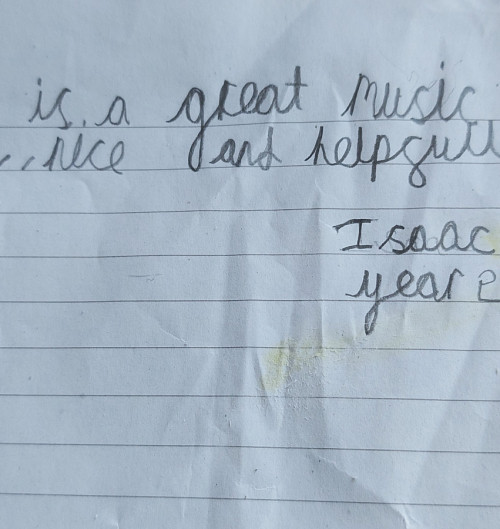 is a great music
nice and helpfull
Isaac
year 2